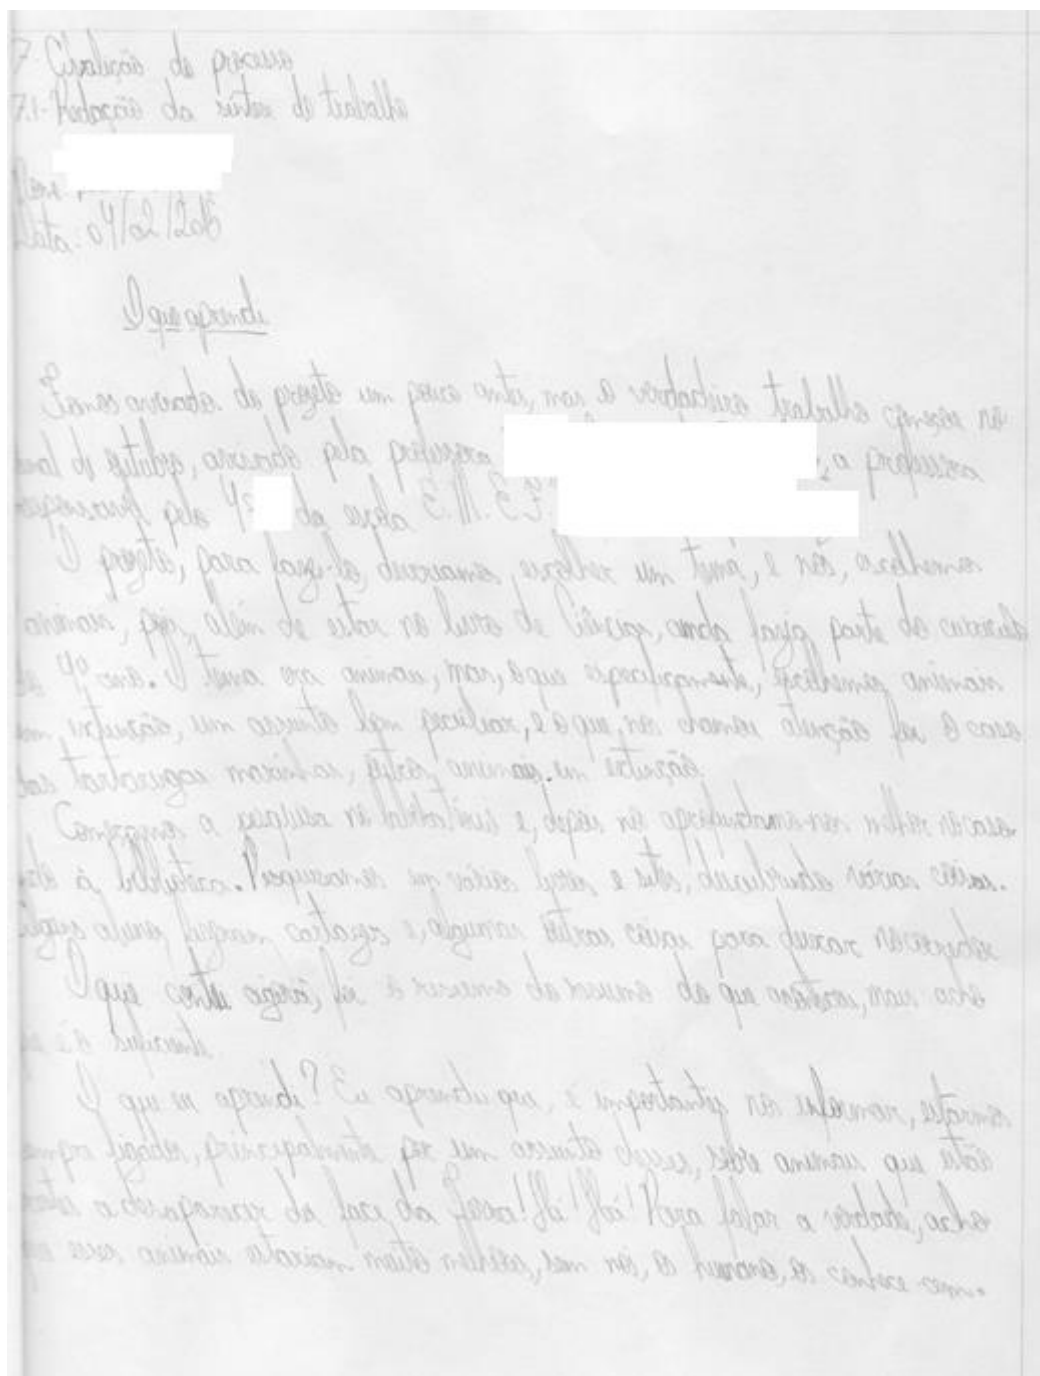 7 Avaliação do processo
7.1- Redação da síntese do trabalho
Data: 04/02/20
O que aprendi
Fomos avisados do projeto um pouco antes, mas o verdadeiro trabalho começou no
de outubro, avisado pela professora , a professora
pelo 4º da escola E.M.E.F.
O projeto, para fazê-lo, deveríamos escolher um tema, e nós, escolhemos
animais, pois, além de estar no livro de Ciências, ainda fazia parte do currículo
do 4º ano. O tema era animais, mas, especificamente, escolhemos animais
em extinção, um assunto bem peculiar, e o que nos chamou atenção foi o caso
das tartarugas marinhas, animais em extinção.
Começamos a pesquisa no laboratório e, depois nos aprofundamos
à biblioteca. Pesquisamos em vários livros e sites, descobrindo várias coisas.
Alguns alunos fizeram cartazes e, algumas outras coisas para deixar
O que contei agora, foi o resumo do resumo do que aconteceu, mas acho
é o suficiente.
O que eu aprendi? Eu aprendi que, é importante nos informar, estarmos
ligados, principalmente por um assunto desses, sobre animais que estão
a desaparecer da face da Terra! Há! Há! Para falar a verdade, acho
que esses animais estariam muito melhores, sem nós, os humanos,